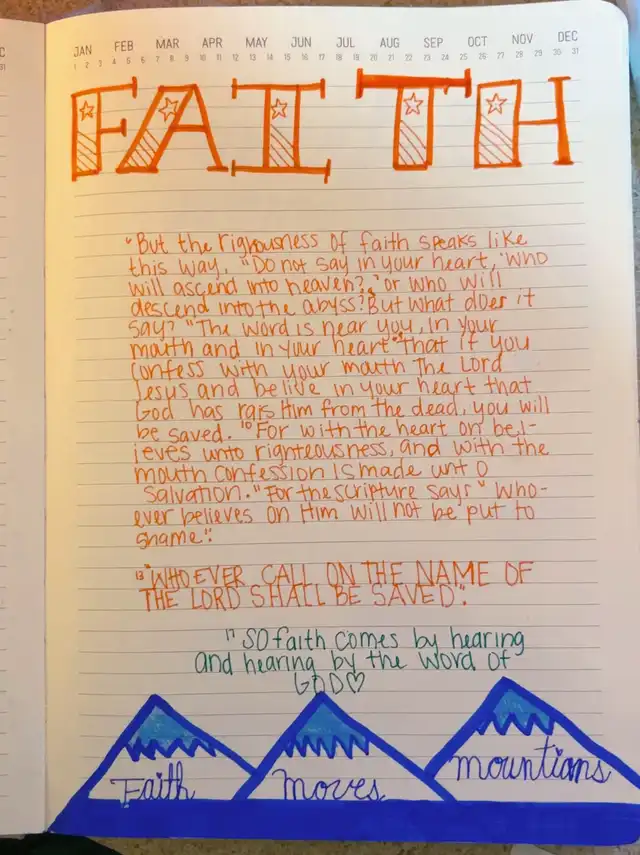 JAN FEB MAR APR MAY JUN JUL AUG SEP OCT NOV DEC
FAITH
"But the righousness of faith speaks like
this way, "Do not say in your heart, 'Who
will ascend into heaven?,' or who will
descend into the abyss? But what does it
say? "The word is near you, in your
mouth and in your heart" that if you
confess with your mouth The Lord
Jesus and belive in your heart that
God has rais Him from the dead, you will
be saved. 10 For with the heart on bel-
ieves unto righteousness, and with the
mouth confession is made unto
Salvation. "For the scripture says "Who-
ever believes on Him will not be put to
shame".
13 "WHO EVER CALL ON THE NAME OF
THE LORD SHALL BE SAVED".
"SO faith comes by hearing
and hearing by the word of
GOD♡
Faith Moves mountians